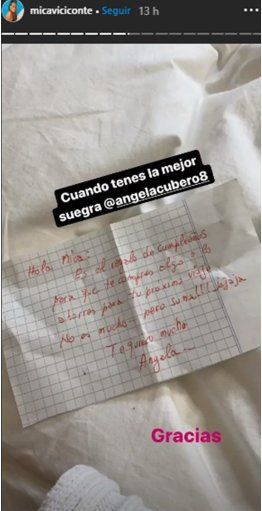 micaviciconte • Seguir 13 h
Cuando tenes la mejor
suegra @angelacubero8
Hola Mica:
Es el regalo de cumpleaños
para que te compres algo o lo
ahorres para tu proximo viaje
No es mucho... pero suma!!! jajaja
Te quiero mucho
Angela
Gracias